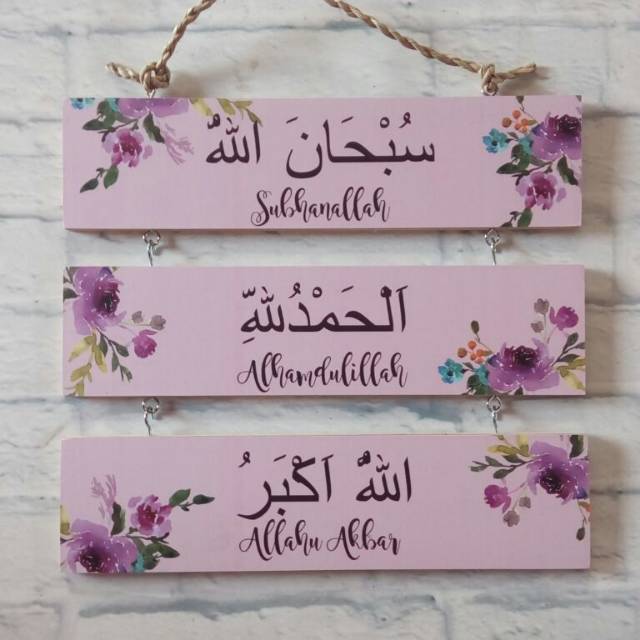 سُبْحَانَ اللّٰهُ
Subhanallah
اَلْحَمْدُلِلّٰهِ
Alhamdulillah
اللّٰهُ اَكْبَرُ
Allahu Akbar